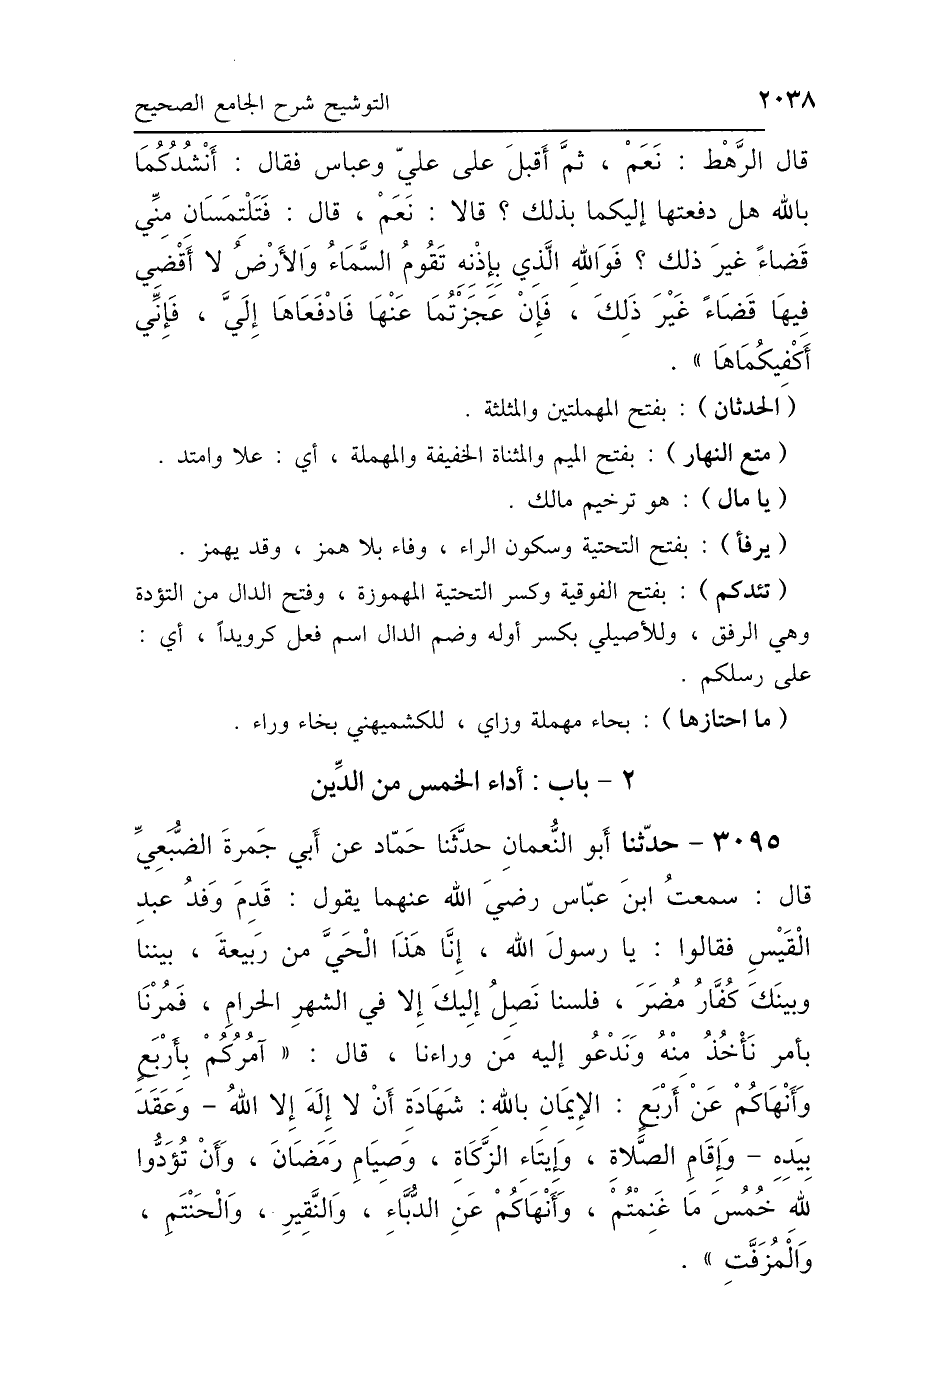 ٢٠٣٨ التوشيح شرح الجامع الصحيح
قال الرَّهْط : نَعَمْ ، ثمَّ أقبلَ على عليّ وعباس فقال : أَنْشُدُكُمَا
بالله هل دفعتها إليكما بذلك ؟ قالا : نَعَمْ ، قال : فَتَلْتِمسَانِ مِنِّي
قَضاءً غيرَ ذلك ؟ فَوَاللهِ الَّذِي بِإِذْنِهِ تَقُومُ السَّمَاءُ وَالأَرْضُ لا أَقْضِي
فِيهَا قَضَاءً غَيْرَ ذَلِكَ ، فَإِنْ عَجَزْتُمَا عَنْهَا فَادْفَعَاهَا إِلَيَّ ، فَإِنِّي
أَكْفِيكُمَاهَا » .
( الحدثان ) : بفتح المهملتين والمثلثة .
( متع النهار ) : بفتح الميم والمثناة الخفيفة والمهملة ، أي : علا وامتد .
( يا مال ) : هو ترخيم مالك .
( يرفأ ) : بفتح التحتية وسكون الراء ، وفاء بلا همز ، وقد يهمز .
( تئدكم ) : بفتح الفوقية وكسر التحتية المهموزة ، وفتح الدال من التؤدة
وهي الرفق ، وللأصيلي بكسر أوله وضم الدال اسم فعل كرويداً ، أي :
على رسلكم .
( ما احتازها ) : بحاء مهملة وزاي ، للكشميهني بخاء وراء .
٢ - باب : أداء الخمس من الدِّين
٣٠٩٥ - حدّثنا أبو النُّعمان حدَّثَنا حَمّاد عن أبي جَمرةَ الضُّبَعِيِّ
قال : سمعتُ ابنَ عبّاس رضيَ الله عنهما يقول : قَدِمَ وَفدُ عبدِ
الْقَيْسِ فقالوا : يا رسولَ الله ، إِنَّا هَذَا الْحَيَّ من رَبيعةَ ، بيننا
وبينَكَ كُفَّارُ مُضَرَ ، فلسنا نَصِلُ إليكَ إلا في الشهرِ الحرامِ ، فَمُرْنَا
بأمر نَأْخُذُ مِنْهُ وَنَدْعُو إليه مَن وراءنا ، قال : « آمُرُكُمْ بِأَرْبَعٍ
وَأَنْهَاكُمْ عَنْ أَرْبَعٍ : الإِيمَانِ بِاللهِ: شَهَادَةِ أَنْ لا إِلَهَ إِلا اللهُ - وَعَقَدَ
بِيَدِهِ - وَإِقَامِ الصَّلاةِ ، وَإِيتَاءِ الزَّكَاةِ ، وَصِيَامِ رَمَضَانَ ، وَأَنْ تُؤَدُّوا
للهِ خُمُسَ مَا غَنِمْتُمْ ، وَأَنْهَاكُمْ عَنِ الدُّبَّاءِ ، وَالنَّقِيرِ ، وَالْحَنْتَمِ ،
وَالْمُزَفَّتِ » .